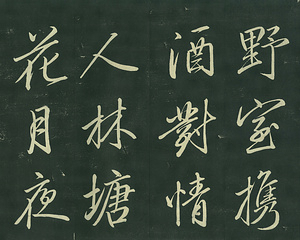 野室携
酒對情
人林塘
花月夜